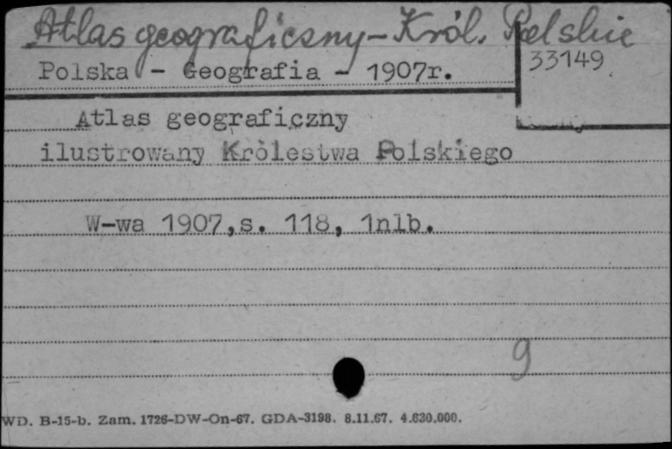 Atlas geograficzny - Król. Polskie
Polska - Geografia - 1907r.
33149
Atlas geograficzny
ilustrowany Królestwa Polskiego
W-wa 1907,s. 118, 1nlb.
9
WD. B-15-b. Zam. 1726-DW-On-67. GDA-3198. 8.11.67. 4.630.000.